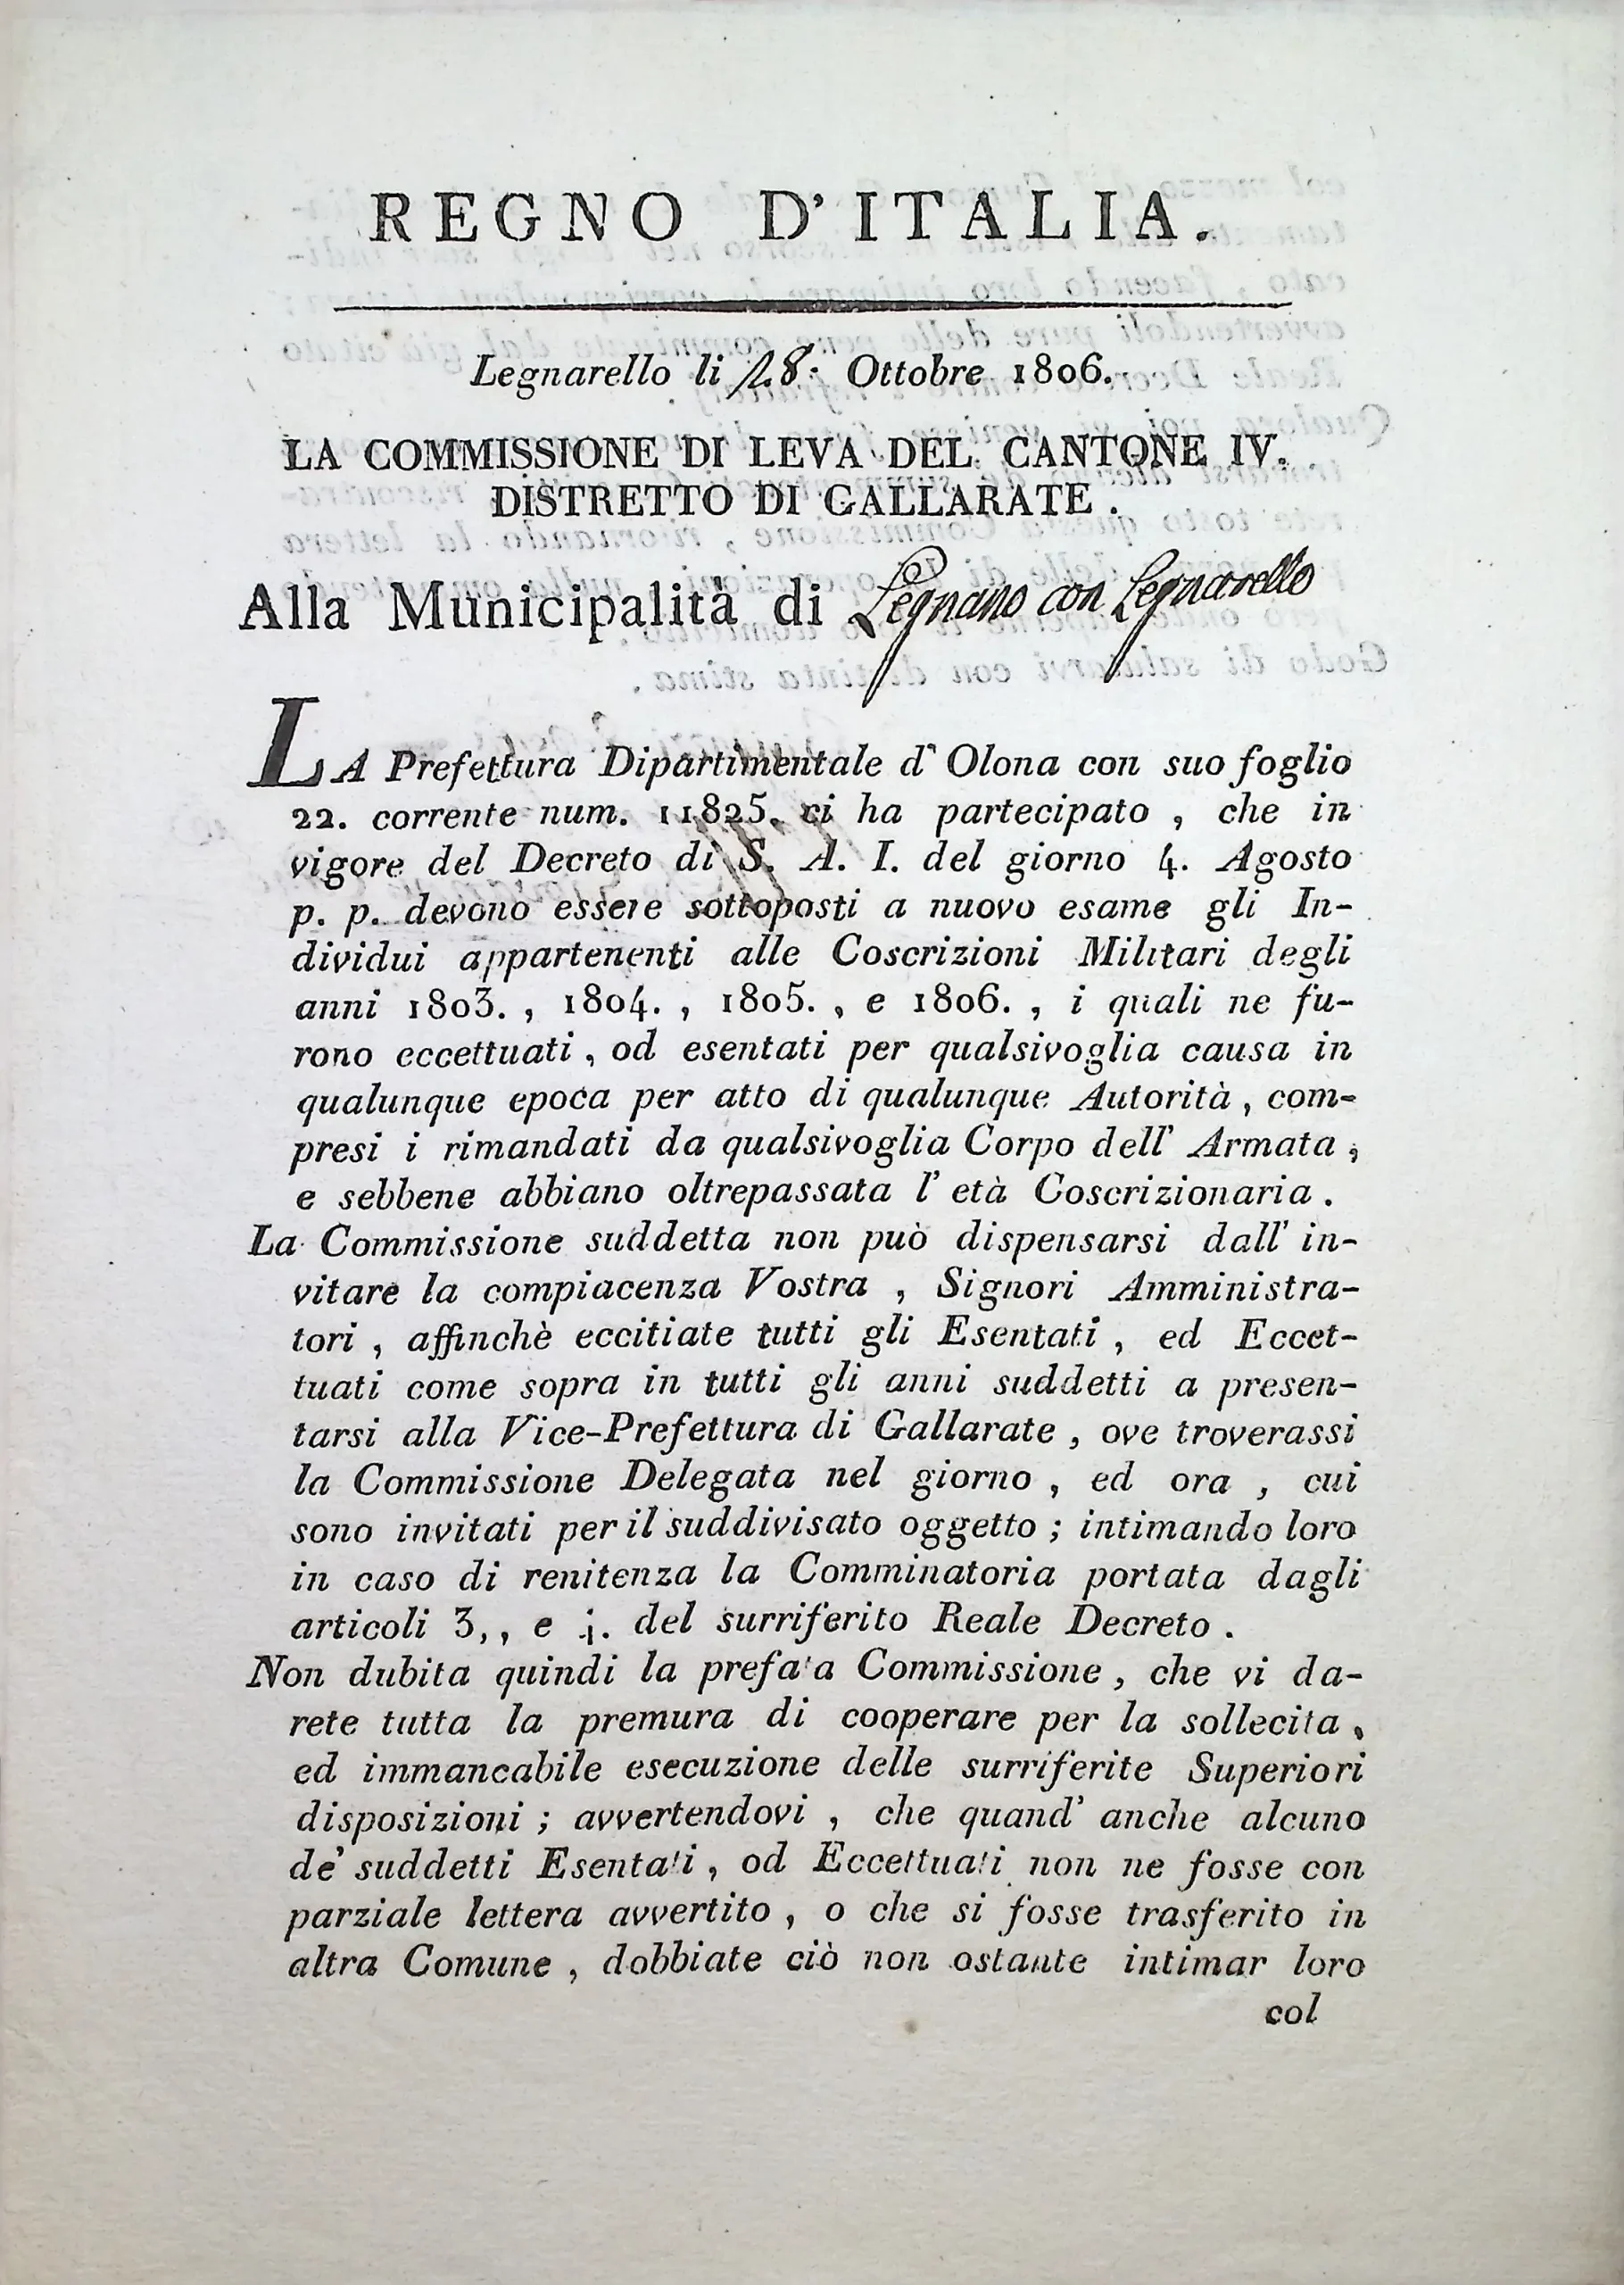 REGNO D' ITALIA.
Legnarello li 28. Ottobre 1806.
LA COMMISSIONE DI LEVA DEL CANTONE IV.
DISTRETTO DI GALLARATE .
Alla Municipalità di Legnano con Legnarello
LA Prefettura Dipartimentale d' Olona con suo foglio
22. corrente num. 11825. ci ha partecipato , che in
vigore del Decreto di S. A. I. del giorno 4. Agosto
p. p. devono essere sottoposti a nuovo esame gli In-
dividui appartenenti alle Coscrizioni Militari degli
anni 1803. , 1804. , 1805. , e 1806. , i quali ne fu-
rono eccettuati , od esentati per qualsivoglia causa in
qualunque epoca per atto di qualunque Autorità , com-
presi i rimandati da qualsivoglia Corpo dell' Armata ,
e sebbene abbiano oltrepassata l' età Coscrizionaria .
La Commissione suddetta non può dispensarsi dall' in-
vitare la compiacenza Vostra , Signori Amministra-
tori , affinchè eccitiate tutti gli Esentati , ed Eccet-
tuati come sopra in tutti gli anni suddetti a presen-
tarsi alla Vice-Prefettura di Gallarate , ove troverassi
la Commissione Delegata nel giorno , ed ora , cui
sono invitati per il suddivisato oggetto ; intimando loro
in caso di renitenza la Comminatoria portata dagli
articoli 3, , e 4. del surriferito Reale Decreto .
Non dubita quindi la prefata Commissione , che vi da-
rete tutta la premura di cooperare per la sollecita ,
ed immancabile esecuzione delle surriferite Superiori
disposizioni ; avvertendovi , che quand' anche alcuno
de' suddetti Esentati , od Eccettuati non ne fosse con
parziale lettera avvertito , o che si fosse trasferito in
altra Comune , dobbiate ciò non ostante intimar loro
col